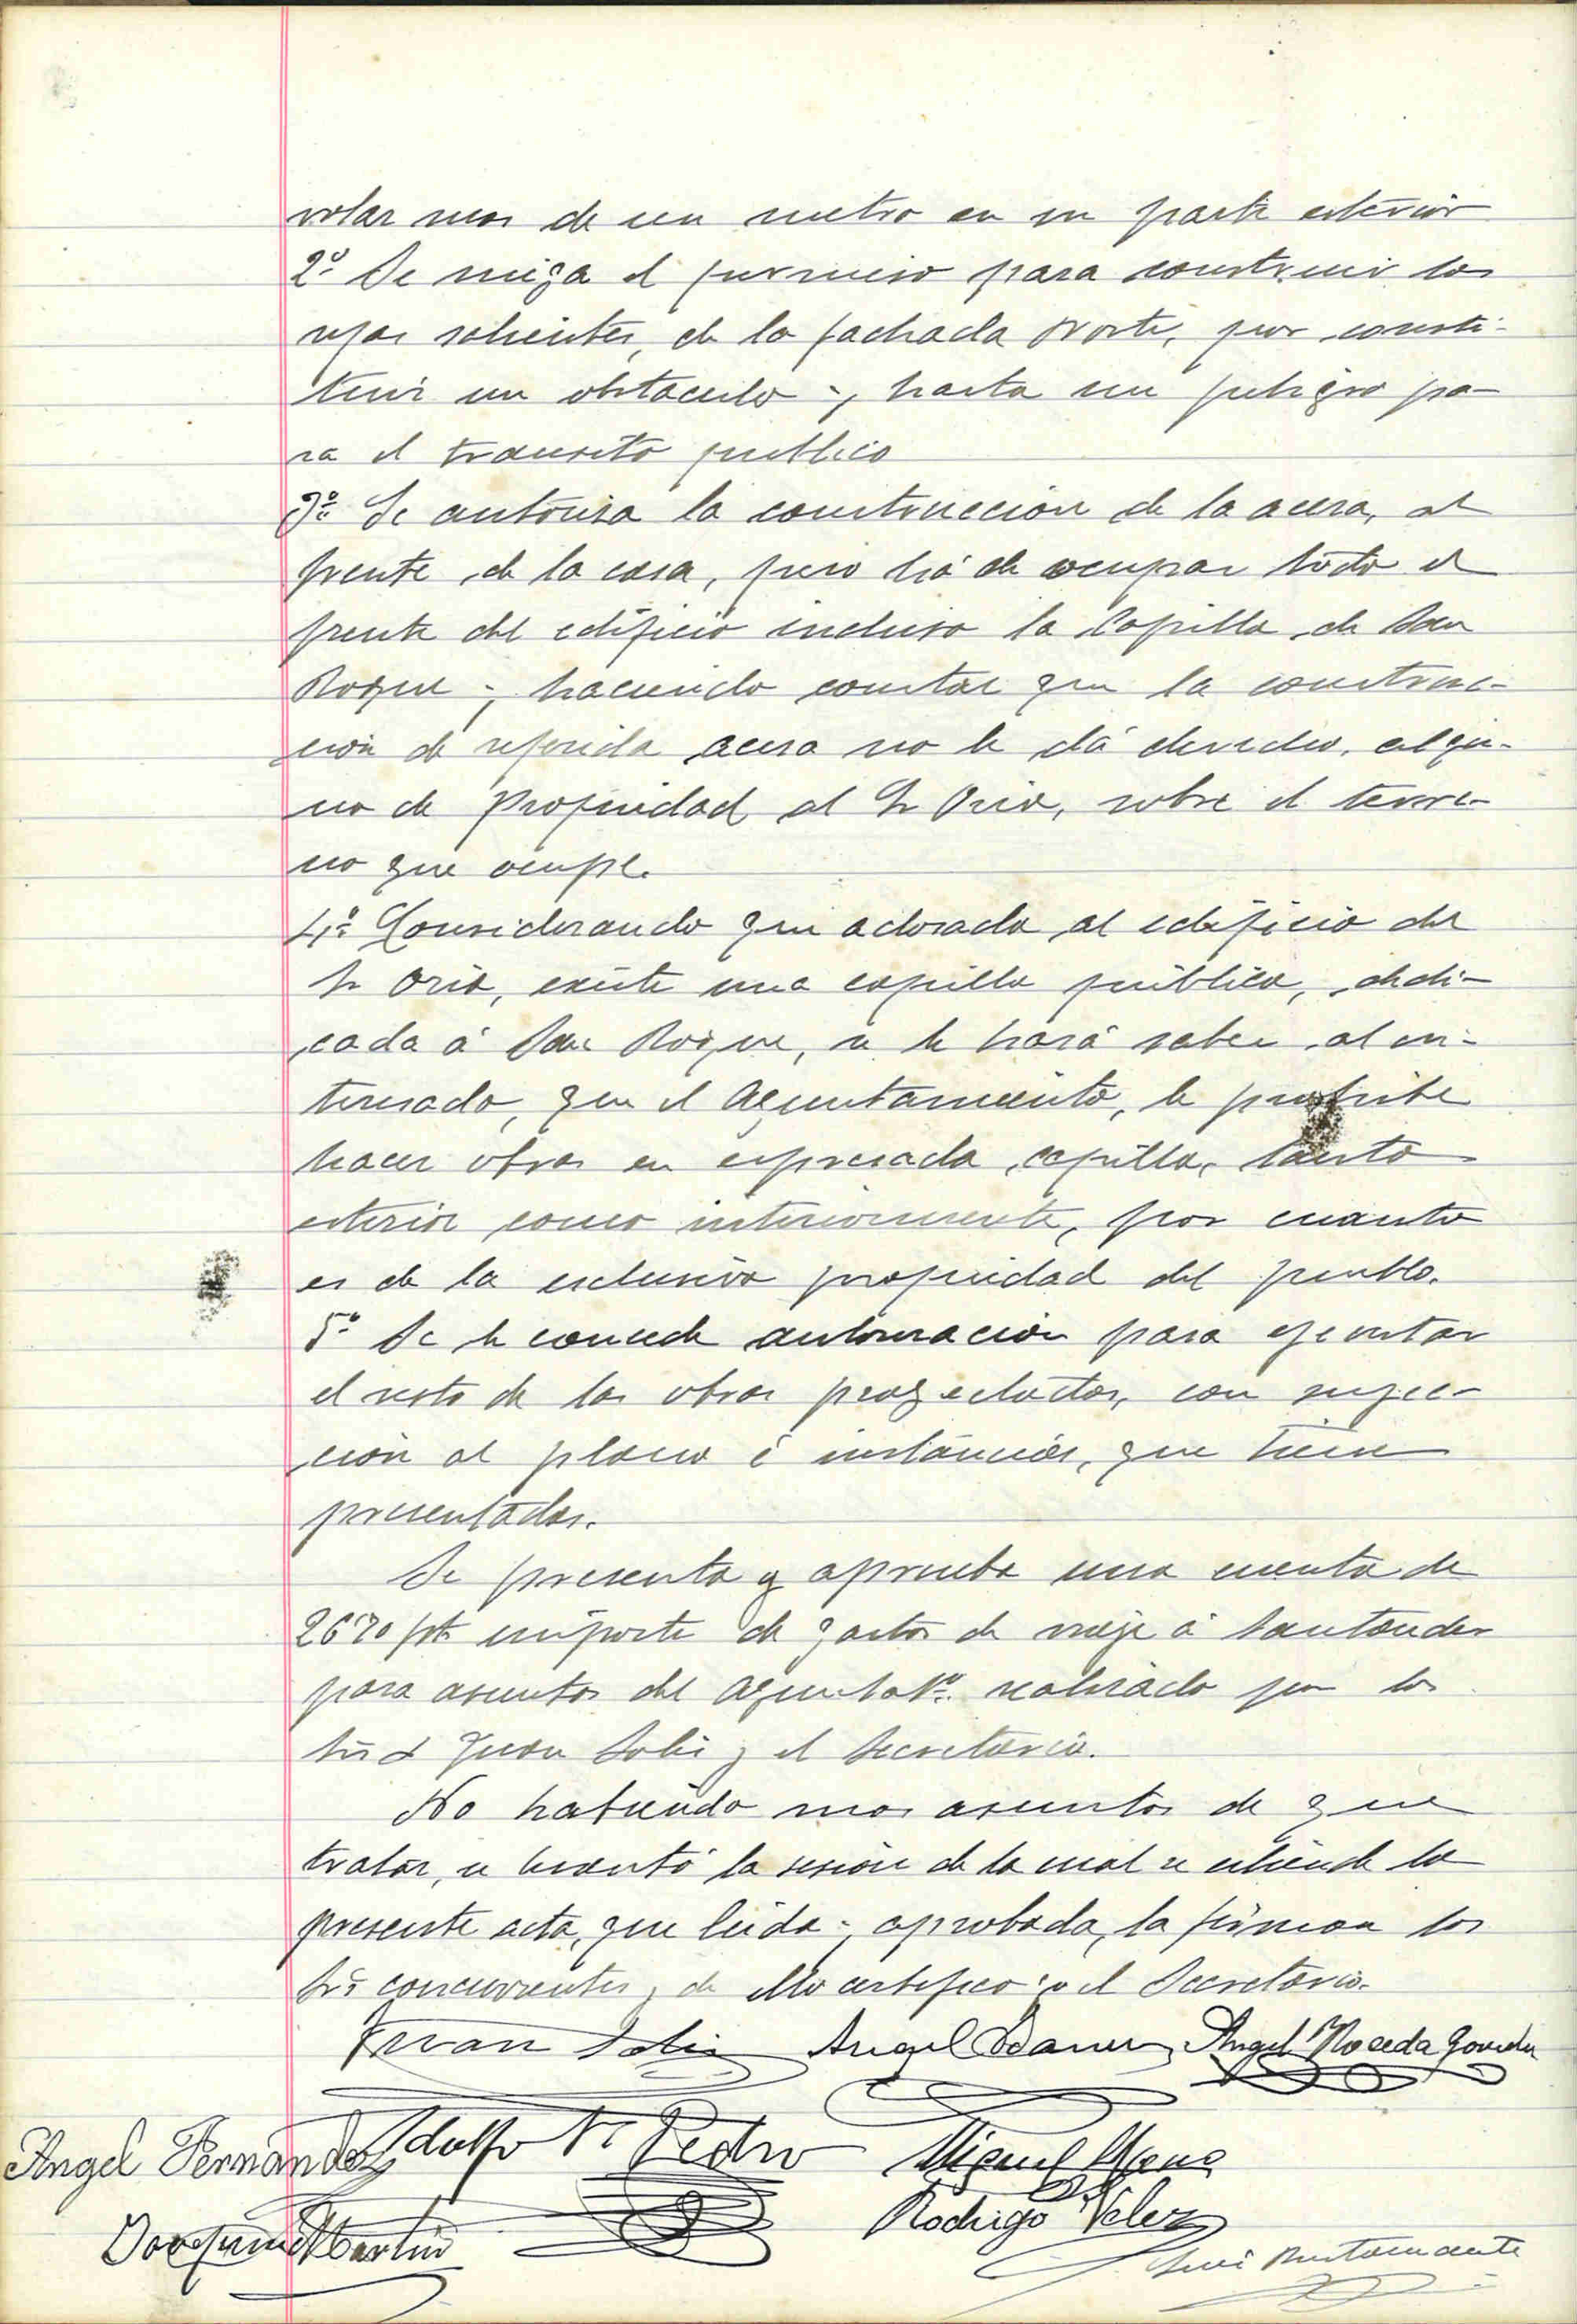 volar mas de un metro en su parte esterior
2º Se niega el permiso para construir las
rejas salientes, de la fachada Norte, por consti-
tuir un obstaculo y hasta un peligro pa-
ra el transito publico
3º Se autoriza la construccion de la acera, al
frente de la casa, pero há de ocupar todo el
frente del edificio incluso la Capilla de San
Roque y haciendo constar que la construc-
cion de referida acera no le dá derecho algu-
no de propiedad al Sr Oria, sobre el terre-
no que ocupe.
4º Considerando que adosada al edificio del
Sr Oria, existe una capilla pública, dedi-
cada á San Roque, se le hará saber al in-
teresado, que el Ayuntamiento, le prohibe
hacer obras en expresada capilla, tanto
esterior como interiormente, por cuanto
es de la esclusiva propiedad del pueblo.
5º Se le concede autorizacion para ejecutar
el resto de las obras proyectadas, con sujec-
ción al plano é instancias, que tiene
presentadas.
Se presenta y aprueba una cuenta de
2670 pts importe de gastos de viaje á Santander
para asuntos del Ayuntatº realizado por los
Srs d Juan Solis y el Secretario.
No habiendo mas asuntos de que
tratar, se levantó la sesión de la cual se estiende la
presente acta, que leida y aprobada, la firman los
Srs concurrentes, de ello certifico yo el Secretario.
Juan Solis Angel Angel Noceda
Angel Fernández Adolfo Pedro Miguel
Joaquin Martin Rodrigo Velez
Bustamante